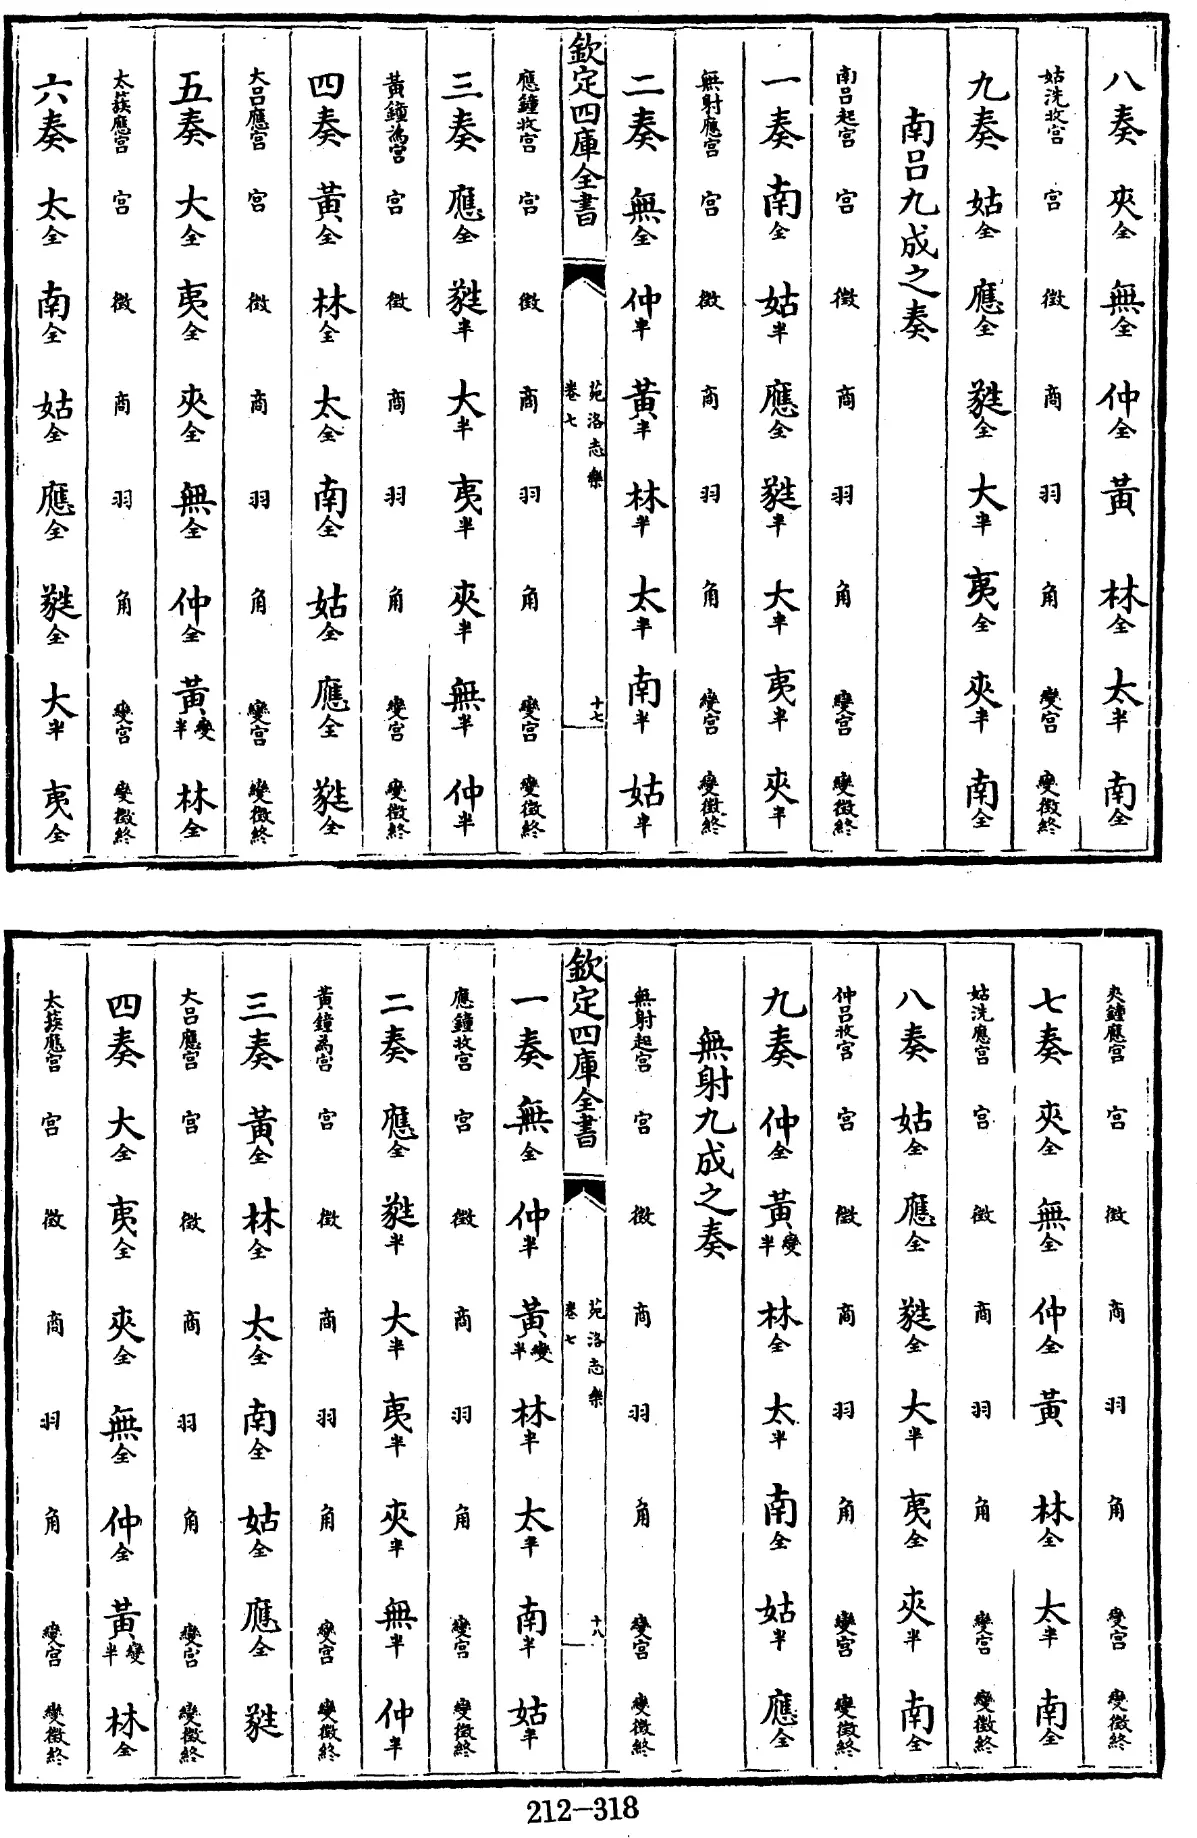 八奏 夾全 無全 仲全 黃 林全 太半 南全
姑洗收宮 宮 徵 商 羽 角 變宮 變徵終
九奏 姑全 應全 蕤全 大半 夷全 夾半 南全
南呂九成之奏
南呂起宮 宮 徵 商 羽 角 變宮 變徵終
一奏 南全 姑半 應全 蕤半 大半 夷半 夾半
無射應宮 宮 徵 商 羽 角 變宮 變徵終
二奏 無全 仲半 黃半 林半 太半 南半 姑半
欽定四庫全書 苑洛志樂 卷七 十七
應鐘收宮 宮 徵 商 羽 角 變宮 變徵終
三奏 應全 蕤半 大半 夷半 夾半 無半 仲半
黃鐘為宮 宮 徵 商 羽 角 變宮 變徵終
四奏 黃全 林全 太全 南全 姑全 應全 蕤全
大呂應宮 宮 徵 商 羽 角 變宮 變徵終
五奏 大全 夷全 夾全 無全 仲全 黃變半 林全
太蔟應宮 宮 徵 商 羽 角 變宮 變徵終
六奏 太全 南全 姑全 應全 蕤全 大半 夷全
夾鐘應宮 宮 徵 商 羽 角 變宮 變徵終
七奏 夾全 無全 仲全 黃 林全 太半 南全
姑洗應宮 宮 徵 商 羽 角 變宮 變徵終
八奏 姑全 應全 蕤全 大半 夷全 夾半 南全
仲呂收宮 宮 徵 商 羽 角 變宮 變徵終
九奏 仲全 黃變半 林全 太半 南全 姑半 應全
無射九成之奏
無射起宮 宮 徵 商 羽 角 變宮 變徵終
欽定四庫全書 苑洛志樂 卷七 十八
一奏 無全 仲半 黃變半 林半 太半 南半 姑半
應鐘收宮 宮 徵 商 羽 角 變宮 變徵終
二奏 應全 蕤半 大半 夷半 夾半 無半 仲半
黃鐘為宮 宮 徵 商 羽 角 變宮 變徵終
三奏 黃全 林全 太全 南全 姑全 應全 蕤
大呂應宮 宮 徵 商 羽 角 變宮 變徵終
四奏 大全 夷全 夾全 無全 仲全 黃變半 林全
太蔟應宮 宮 徵 商 羽 角 變宮 變徵終
212-318